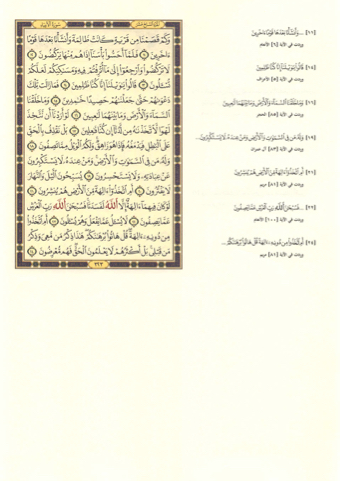 وَكَمْ قَصَمْنَا مِن قَرْيَةٍ كَانَتْ ظَالِمَةً وَأَنشَأْنَا بَعْدَهَا قَوْمًا
ءَاخَرِينَ ۝ فَلَمَّآ أَحَسُّوا۟ بَأْسَنَآ إِذَا هُم مِّنْهَا يَرْكُضُونَ ۝
لَا تَرْكُضُوا۟ وَٱرْجِعُوٓا۟ إِلَىٰ مَآ أُتْرِفْتُمْ فِيهِ وَمَسَٰكِنِكُمْ لَعَلَّكُمْ
تُسْـَٔلُونَ ۝ قَالُوا۟ يَٰوَيْلَنَآ إِنَّا كُنَّا ظَٰلِمِينَ ۝ فَمَا زَالَت تِّلْكَ
دَعْوَىٰهُمْ حَتَّىٰ جَعَلْنَٰهُمْ حَصِيدًا خَٰمِدِينَ ۝ وَمَا خَلَقْنَا
ٱلسَّمَآءَ وَٱلْأَرْضَ وَمَا بَيْنَهُمَا لَٰعِبِينَ ۝ لَوْ أَرَدْنَآ أَن نَّتَّخِذَ
لَهْوًا لَّٱتَّخَذْنَٰهُ مِن لَّدُنَّآ إِن كُنَّا فَٰعِلِينَ ۝ بَلْ نَقْذِفُ بِٱلْحَقِّ
عَلَى ٱلْبَٰطِلِ فَيَدْمَغُهُۥ فَإِذَا هُوَ زَاهِقٌ وَلَكُمُ ٱلْوَيْلُ مِمَّا تَصِفُونَ ۝
وَلَهُۥ مَن فِى ٱلسَّمَٰوَٰتِ وَٱلْأَرْضِ وَمَنْ عِندَهُۥ لَا يَسْتَكْبِرُونَ
عَنْ عِبَادَتِهِۦ وَلَا يَسْتَحْسِرُونَ ۝ يُسَبِّحُونَ ٱلَّيْلَ وَٱلنَّهَارَ
لَا يَفْتُرُونَ ۝ أَمِ ٱتَّخَذُوٓا۟ ءَالِهَةً مِّنَ ٱلْأَرْضِ هُمْ يُنشِرُونَ ۝
لَوْ كَانَ فِيهِمَآ ءَالِهَةٌ إِلَّا ٱللَّهُ لَفَسَدَتَا فَسُبْحَٰنَ ٱللَّهِ رَبِّ ٱلْعَرْشِ
عَمَّا يَصِفُونَ ۝ لَا يُسْـَٔلُ عَمَّا يَفْعَلُ وَهُمْ يُسْـَٔلُونَ ۝ أَمِ ٱتَّخَذُوا۟
مِن دُونِهِۦٓ ءَالِهَةً قُلْ هَاتُوا۟ بُرْهَٰنَكُمْ هَٰذَا ذِكْرُ مَن مَّعِىَ وَذِكْرُ
مَن قَبْلِى بَلْ أَكْثَرُهُمْ لَا يَعْلَمُونَ ٱلْحَقَّ فَهُم مُّعْرِضُونَ ۝
٣٢٣
[١١] ...وَأَنشَأْنَا بَعْدَهَا قَوْمًا ءَاخَرِينَ
وردت في الآية [٦] الأنعام
قَالُوا۟ يَٰوَيْلَنَآ إِنَّا كُنَّا ظَٰلِمِينَ
وردت في الآية [٥] الأعراف
[١٦] وَمَا خَلَقْنَا ٱلسَّمَآءَ وَٱلْأَرْضَ وَمَا بَيْنَهُمَا لَٰعِبِينَ
وردت في الآية [٨٥] الحجر
[١٩] وَلَهُۥ مَن فِى ٱلسَّمَٰوَٰتِ وَٱلْأَرْضِ وَمَنْ عِندَهُۥ لَا يَسْتَكْبِرُونَ...
وردت في الآية [٨٣] آل عمران
[٢١] أَمِ ٱتَّخَذُوٓا۟ ءَالِهَةً مِّنَ ٱلْأَرْضِ هُمْ يُنشِرُونَ
وردت في الآية [٨١] مريم
[٢٢] ...فَسُبْحَٰنَ ٱللَّهِ رَبِّ ٱلْعَرْشِ عَمَّا يَصِفُونَ
وردت في الآية [١٠٠] الأنعام
[٢٤] أَمِ ٱتَّخَذُوا۟ مِن دُونِهِۦٓ ءَالِهَةً قُلْ هَاتُوا۟ بُرْهَٰنَكُمْ...
وردت في الآية [٨١] مريم